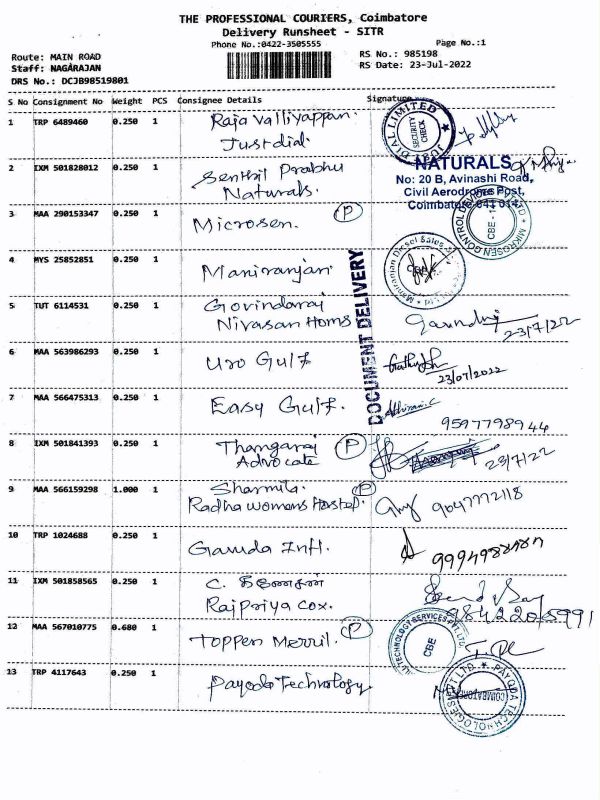 THE PROFESSIONAL COURIERS, Coimbatore
Delivery Runsheet - SITR
Phone No.:0422-3505555
Page No.:1
Route: MAIN ROAD
RS No.: 985198
Staff: NAGARAJAN
RS Date: 23-Jul-2022
DRS No.: DCJB98519801
S No Consignment No Weight PCS Consignee Details Signature
1 TRP 6489460 0.250 1 Raja Valliyappan.
Justdial.
JUST DIAL LIMITED
SECURITY CHECK
2 IXM 501828012 0.250 1 Senthil Prabhu
Naturals.
NATURALS
No: 20 B, Avinashi Road,
Civil Aerodrome Post,
Coimbatore 641 014.
3 MAA 290153347 0.250 1 Microsen. P
MIKROSEN CONTROL
CBE - 14
4 MYS 25852851 0.250 1 Maniranjan.
Maniranjan Diesel Sales
DOCUMENT DELIVERY
5 TUT 6114531 0.250 1 Govindaraj
Nivasan Homs
23/7/22
6 MAA 563986293 0.250 1 Uro Gulf
23/07/2022
7 MAA 566475313 0.250 1 Easy Gulf.
9597798944
8 IXM 501841393 0.250 1 Thangaraj P
Advocate
23/7/22
9 MAA 566159298 1.000 1 Sharmila. P
Radha womens Hostel.
9047772118
10 TRP 1024688 0.250 1 Garuda Inft.
11 IXM 501858565 0.250 1 C.
Rajpriya Cox.
9842205991
12 MAA 567010775 0.680 1 Toppen Merril. P
TECHNOLOGY SERVICES PVT LTD
CBE
13 TRP 4117643 0.250 1 Payoda Technology
PAYODA TECHNOLOGIES PVT LTD
COIMBATORE